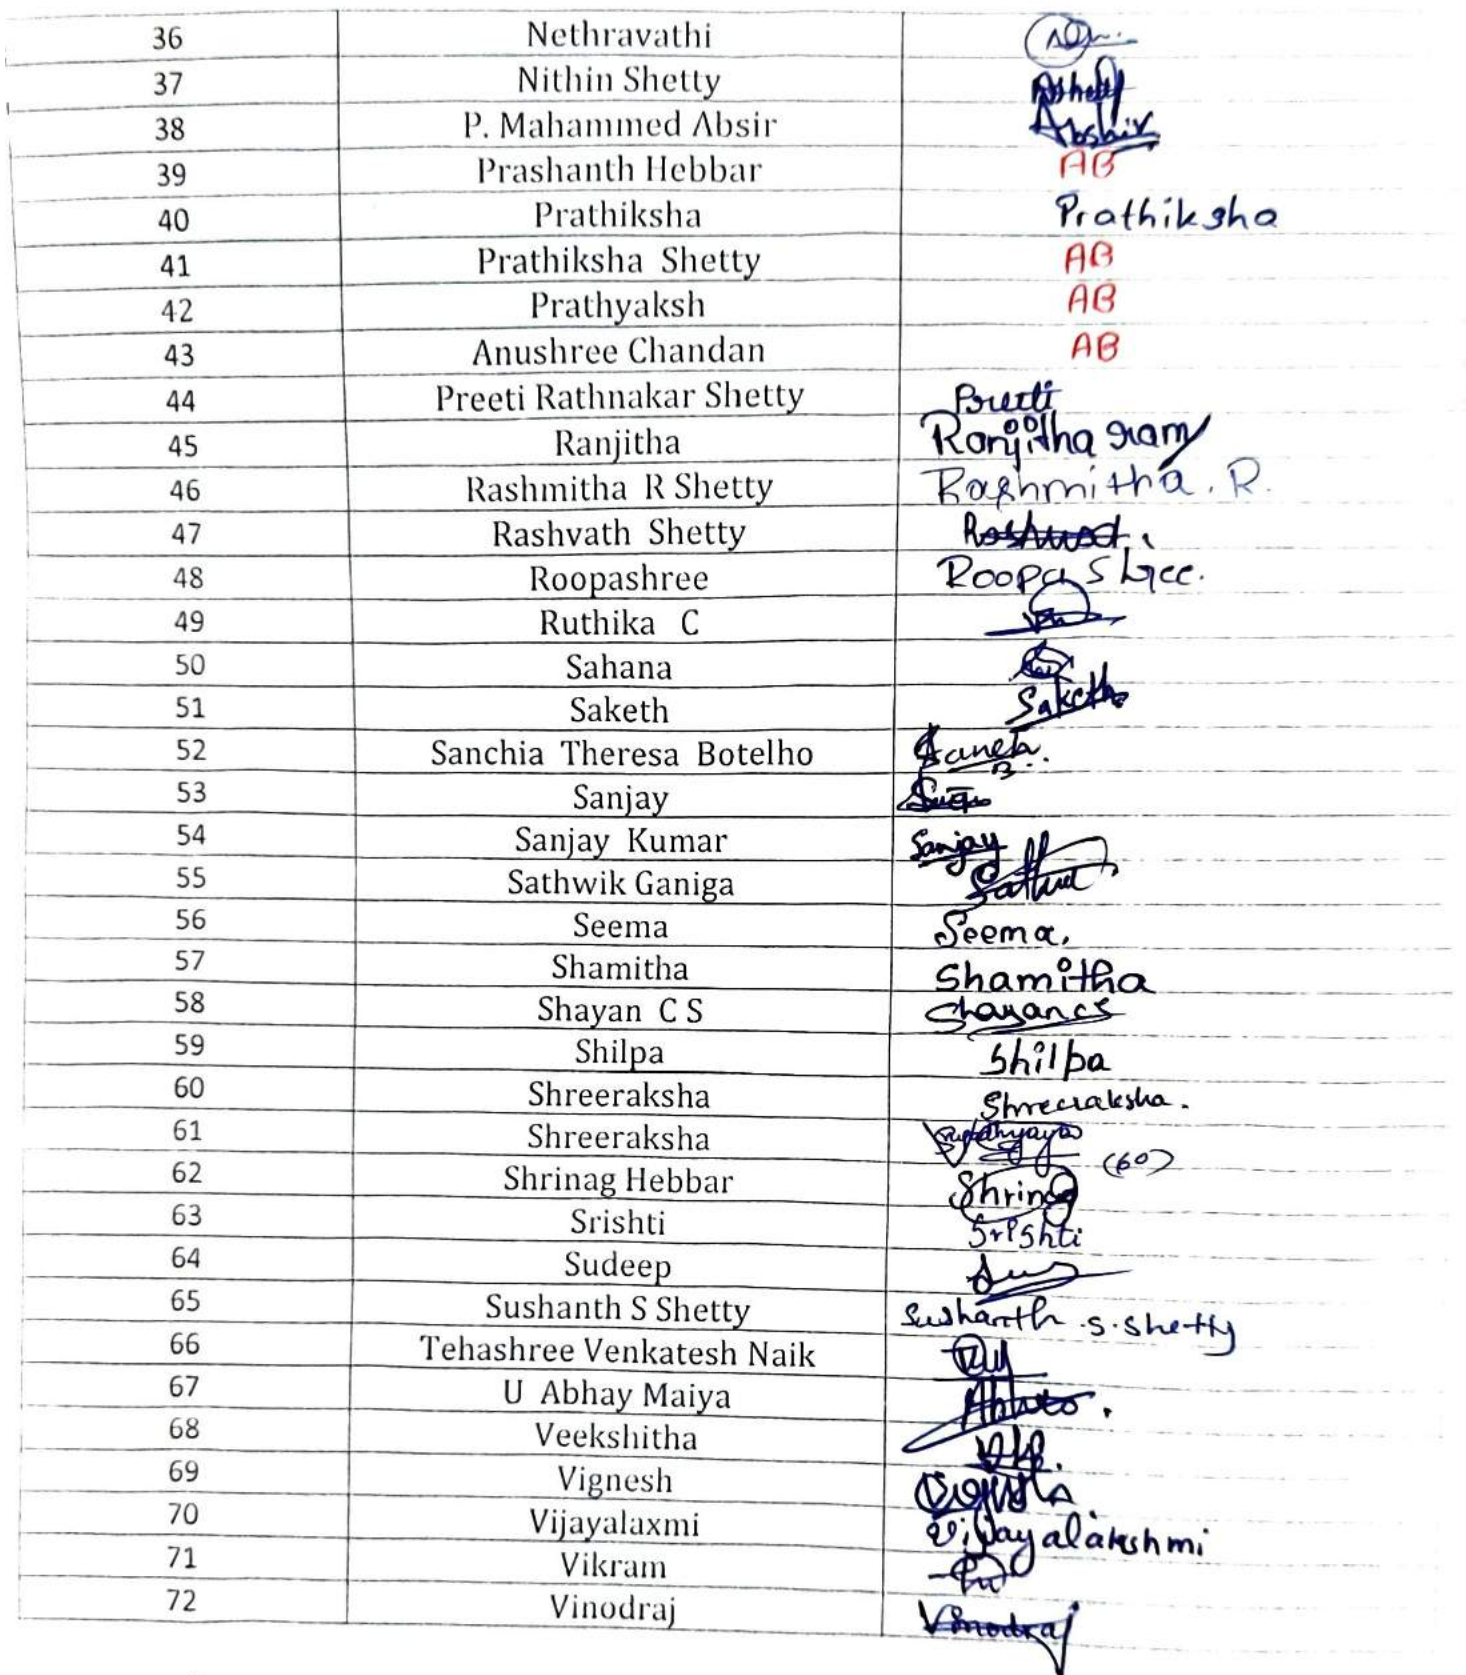 36 Nethravathi
37 Nithin Shetty
38 P. Mahammed Absir Abshir
39 Prashanth Hebbar AB
40 Prathiksha Prathiksha
41 Prathiksha Shetty AB
42 Prathyaksh AB
43 Anushree Chandan AB
44 Preeti Rathnakar Shetty Preeti
45 Ranjitha Ranjitha ram
46 Rashmitha R Shetty Rashmitha. R.
47 Rashvath Shetty
48 Roopashree Roopa Shree.
49 Ruthika C
50 Sahana
51 Saketh Saketh
52 Sanchia Theresa Botelho
53 Sanjay
54 Sanjay Kumar Sanjay
55 Sathwik Ganiga
56 Seema Seema.
57 Shamitha Shamitha
58 Shayan C S Shayan CS
59 Shilpa Shilpa
60 Shreeraksha Shreeraksha.
61 Shreeraksha (60)
62 Shrinag Hebbar
63 Srishti Srishti
64 Sudeep
65 Sushanth S Shetty Sushanth .S. Shetty
66 Tehashree Venkatesh Naik
67 U Abhay Maiya
68 Veekshitha
69 Vignesh
70 Vijayalaxmi Vijayalakshmi
71 Vikram
72 Vinodraj Vinodraj